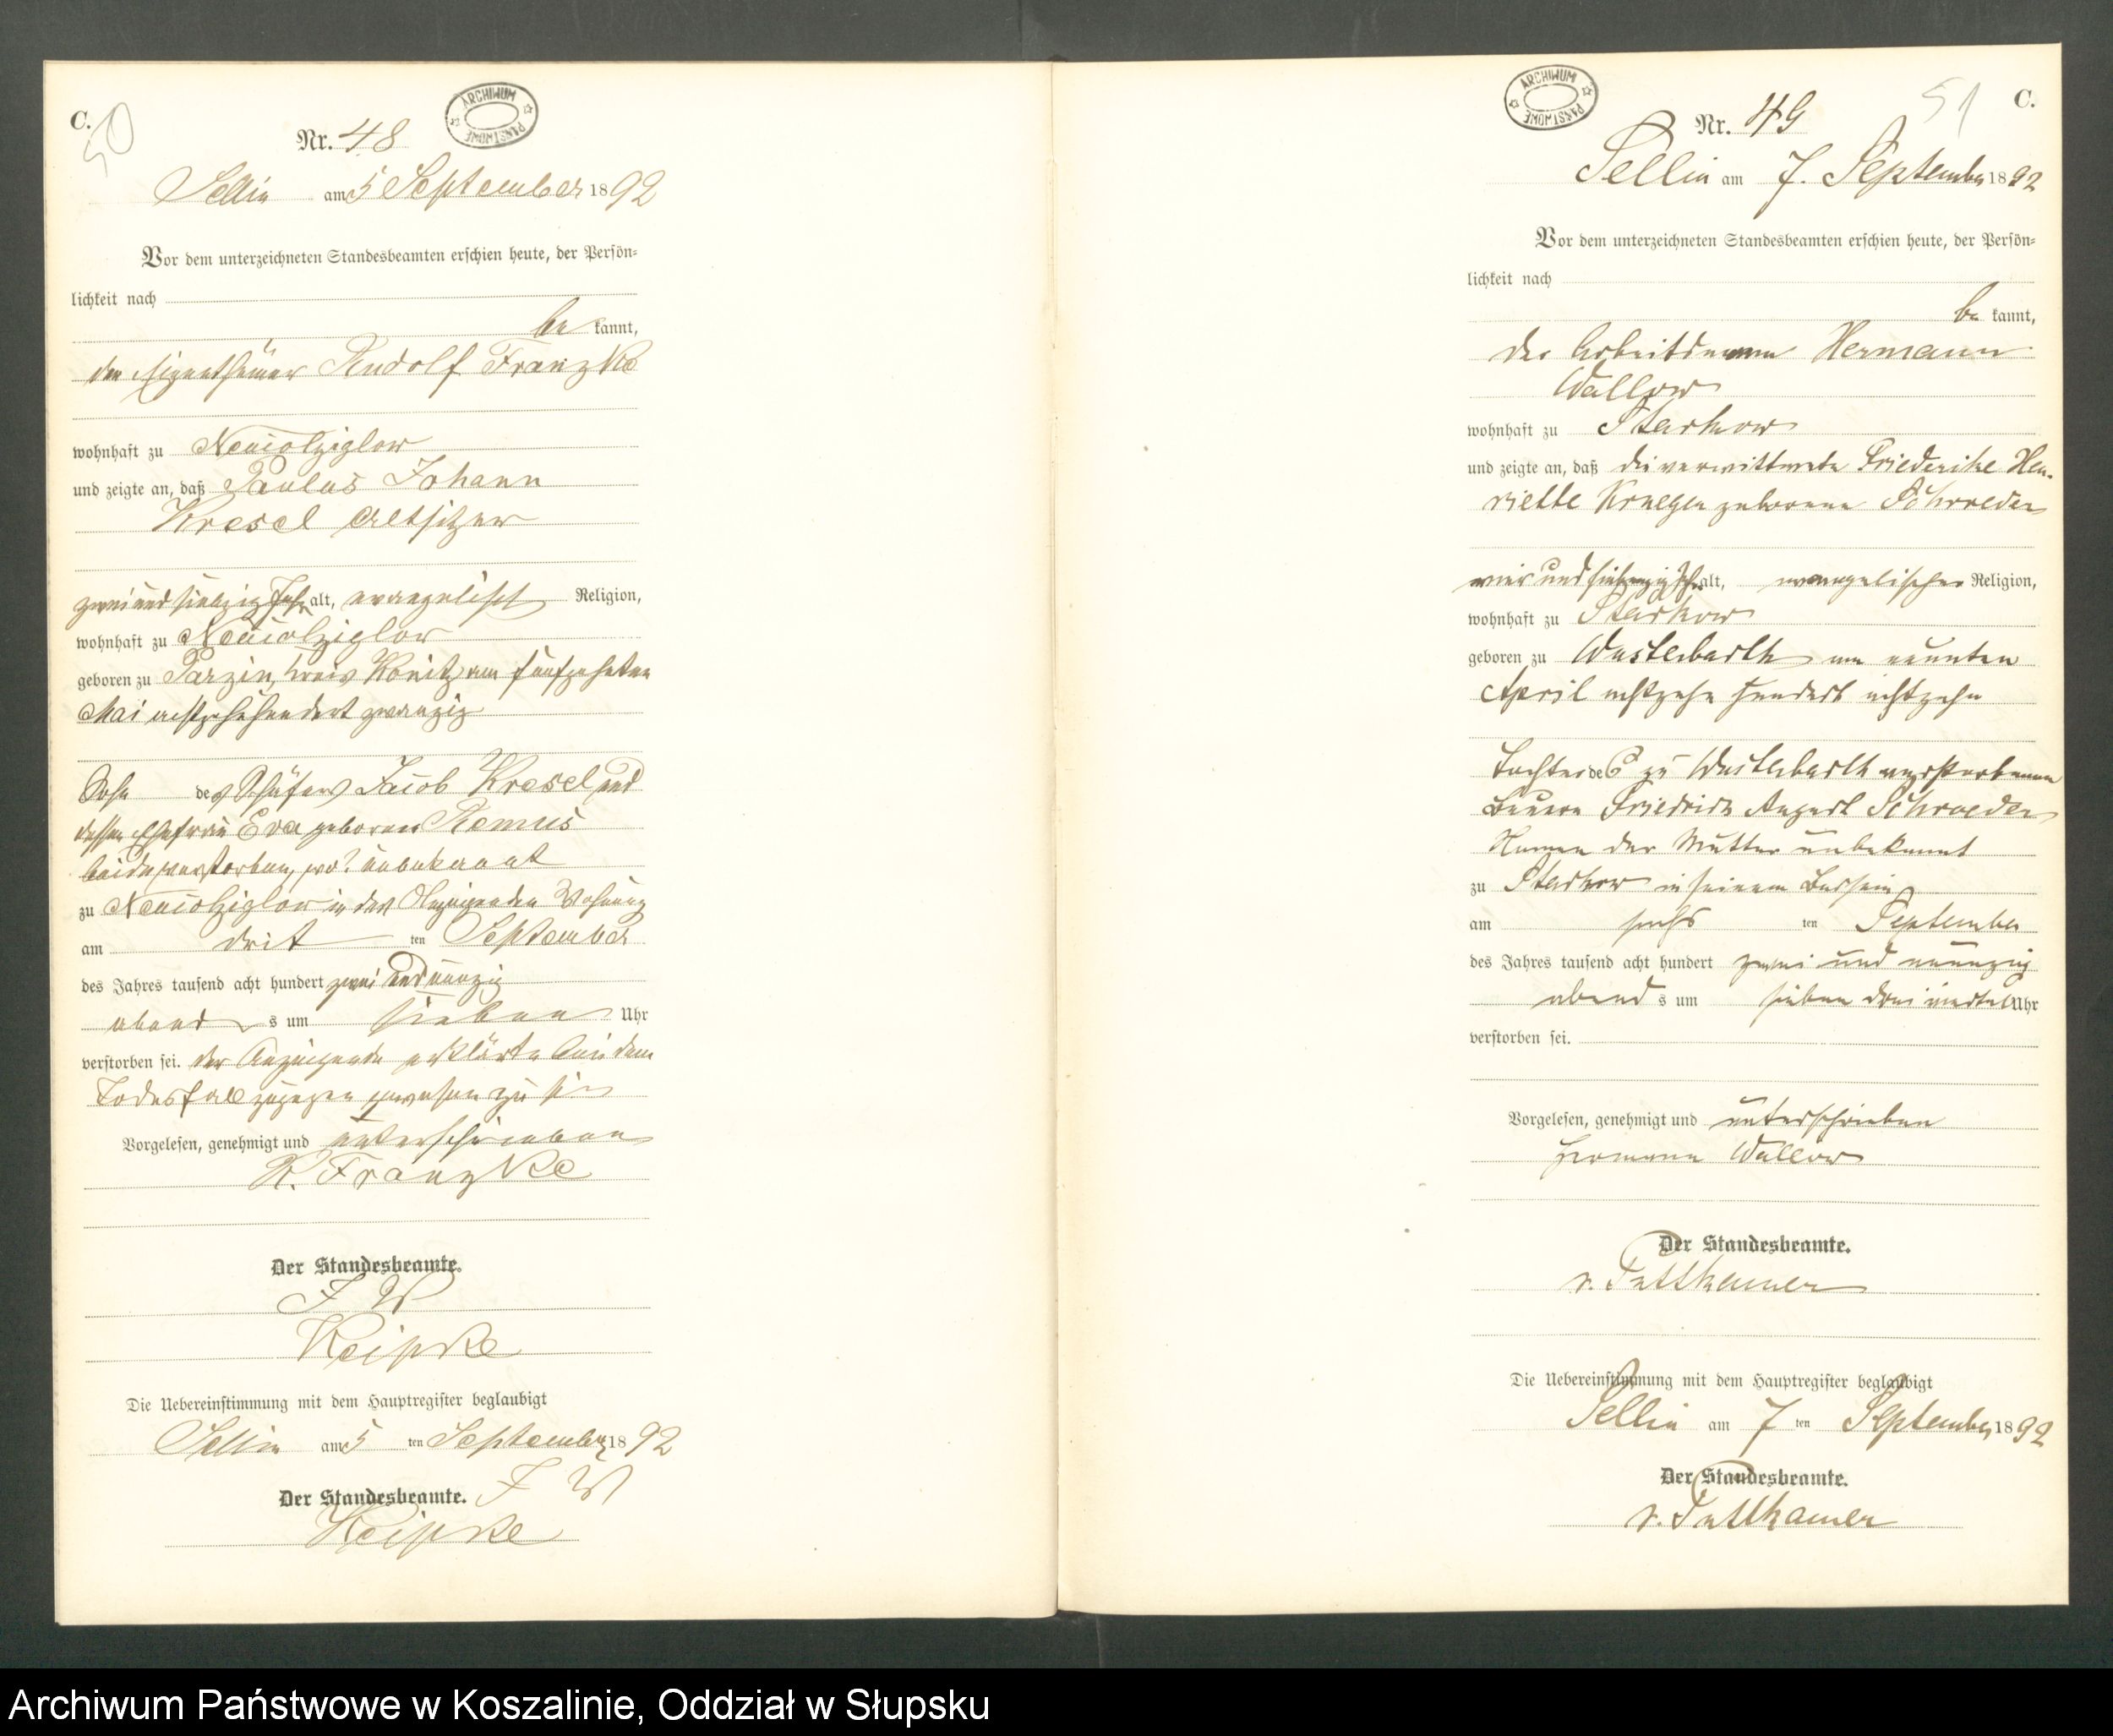 C.
50
ARCHIWUM PAŃSTWOWE
Nr. 48
Sellin am 5 September 1892
Vor dem unterzeichneten Standesbeamten erschien heute, der Persön-
lichkeit nach
be kannt,
der Eigenthümer Rudolf Franzke
wohnhaft zu Neujolziglow
und zeigte an, daß Paulus Johann
Kresel Altsitzer
zweiundsiebzig Jahr alt, evangelisch Religion,
wohnhaft zu Neujolziglow
geboren zu Parzin, Kreis Konitz am fünfzehnten
Mai achtzehnhundert zwanzig
Sohn des Schäfers Jacob Kresel und
dessen Ehefrau Eva geborene Remus
beide verstorben, wo? unbekannt
zu Neujolziglow in des Anzeigenden Wohnung
am drit ten September
des Jahres tausend acht hundert zwei und neunzig
abend s um sieben Uhr
verstorben sei. der Anzeigende erklärte bei dem
Todesfall zugegen gewesen zu sein
Vorgelesen, genehmigt und unterschrieben
R. Franzke
Der Standesbeamte.
I V
Keipke
Die Uebereinstimmung mit dem Hauptregister beglaubigt
Sellin am 5 ten September 1892
Der Standesbeamte. I V
Keipke
ARCHIWUM PAŃSTWOWE
51
C.
Nr. 49
Sellin am 7. September 1892
Vor dem unterzeichneten Standesbeamten erschien heute, der Persön-
lichkeit nach
be kannt,
der Arbeitsmann Hermann
Wallow
wohnhaft zu Starkow
und zeigte an, daß die verwittwete Friederike Hen-
riette Krueger geborene Schroeder
vier und siebenzig Jahr alt, evangelischer Religion,
wohnhaft zu Starkow
geboren zu Wusterbarth am neunten
April achtzehn hundert achtzehn
Tochter des zu Wusterbarth verstorbenen
Bauern Friedrich August Schroeder
Namen der Mutter unbekannt
zu Starkow in seinem Beisein
am sechs ten September
des Jahres tausend acht hundert zwei und neunzig
abend s um sieben drei viertel Uhr
verstorben sei.
Vorgelesen, genehmigt und unterschrieben
Hermann Wallow
Der Standesbeamte.
v. Puttkamer
Die Uebereinstimmung mit dem Hauptregister beglaubigt
Sellin am 7 ten September 1892
Der Standesbeamte.
v. Puttkamer
Archiwum Państwowe w Koszalinie, Oddział w Słupsku